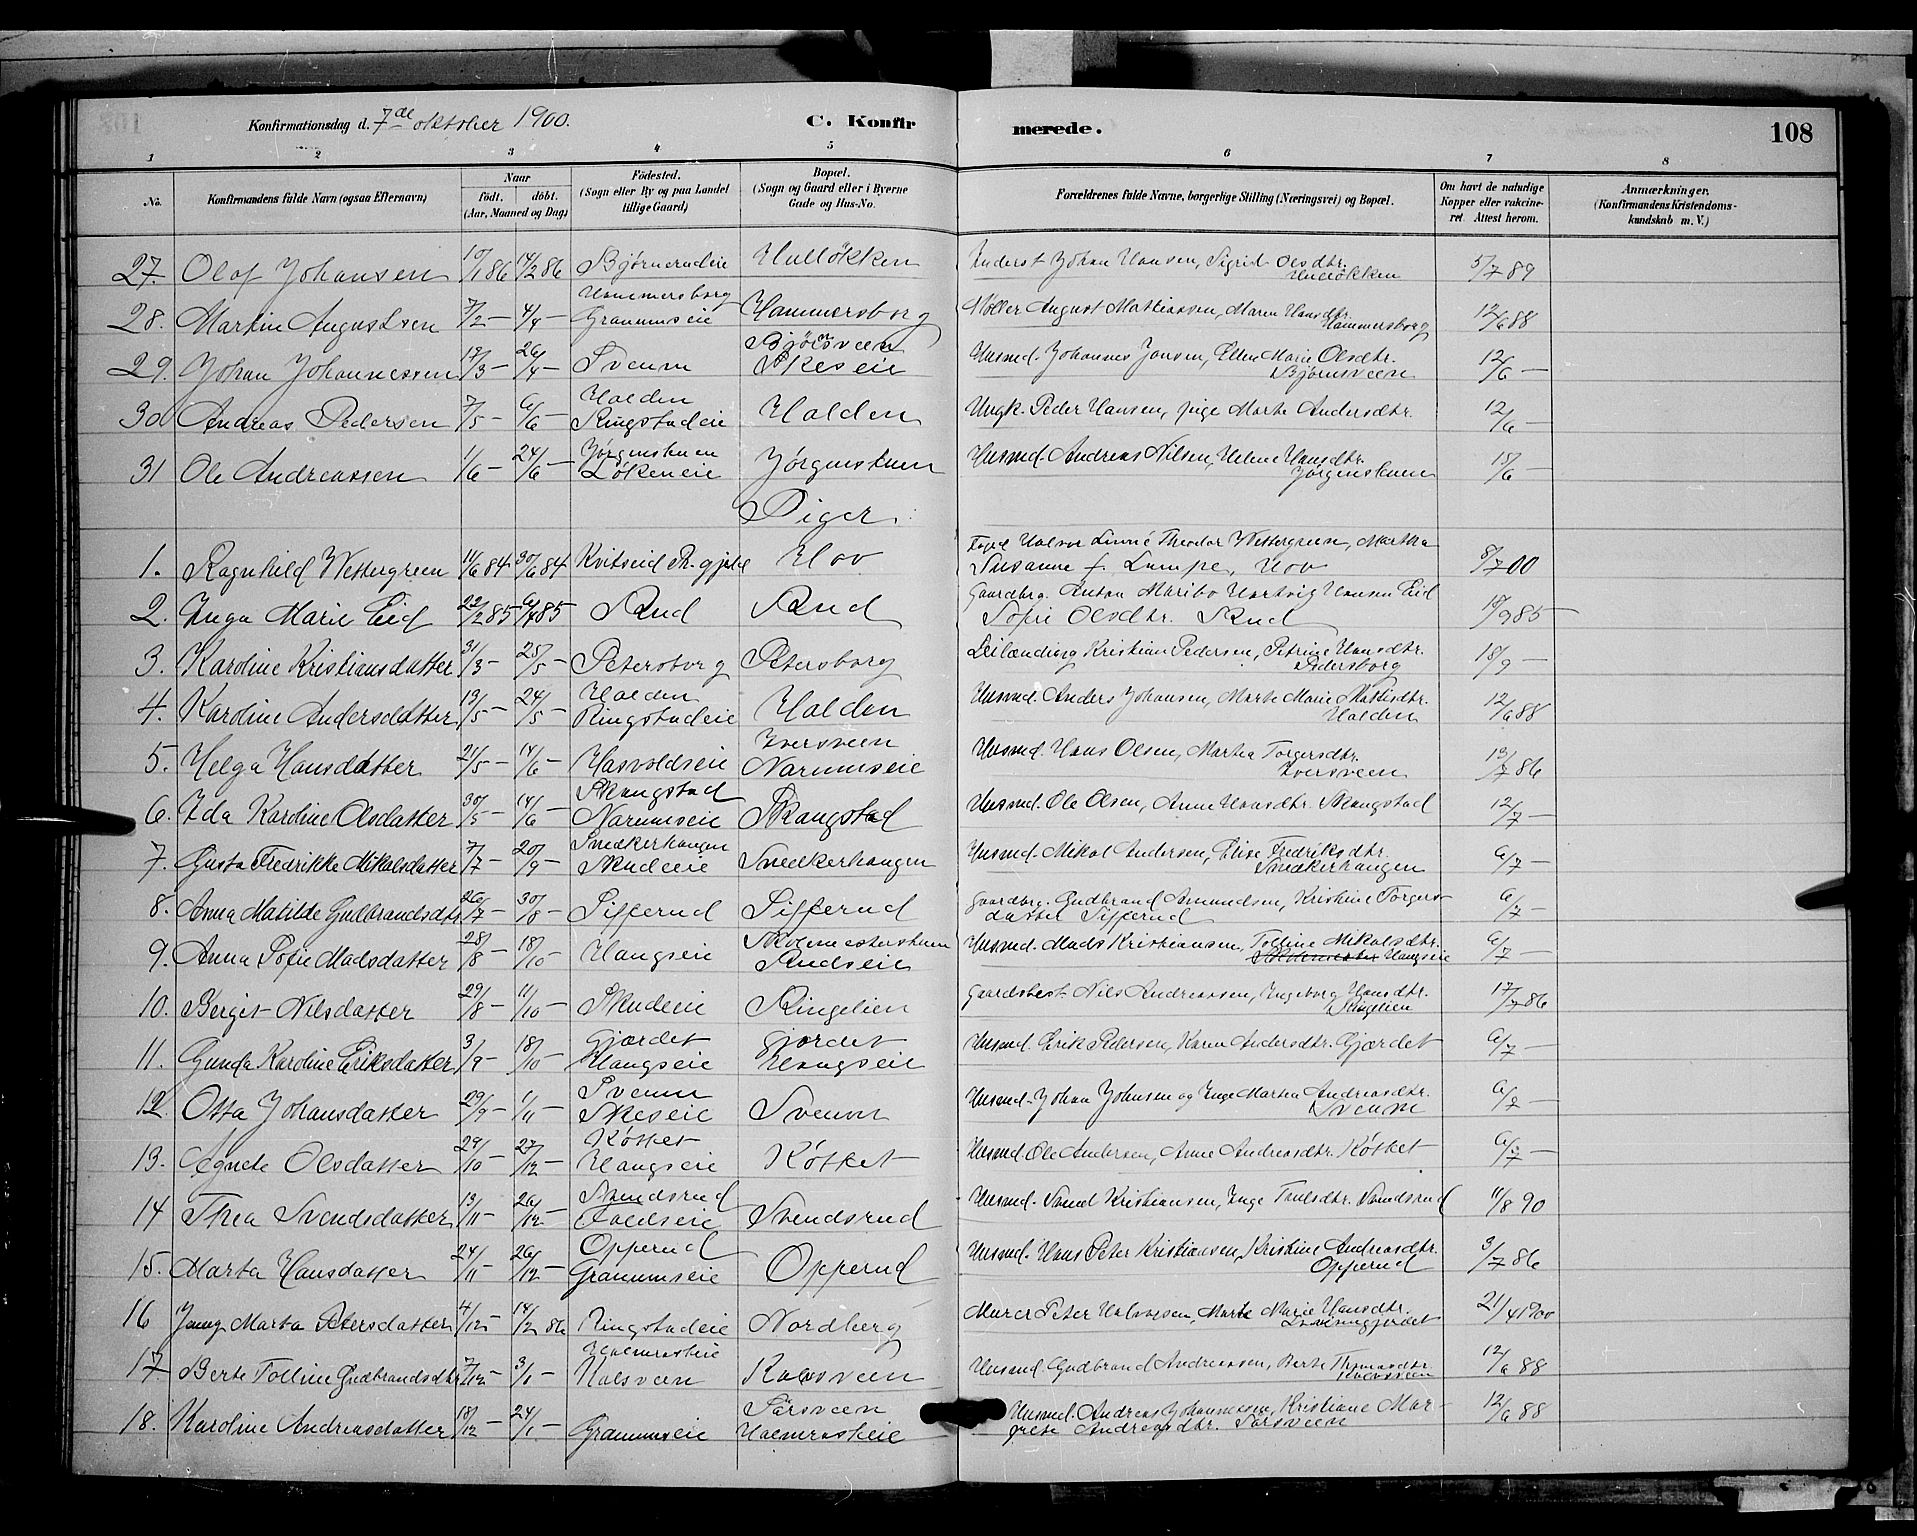 Konfirmationsdag d. 7de oktober 1900. C. Konfir merede. 108
1 2 3 4 5 6 7 8
No. Konfirmandens fulde Navn (ogsaa Efternavn) Naar født. døbt. (Aar, Maaned og Dag) Fødested. (Sogn eller By og paa Landet tillige Gaard) Bopæl. (Sogn og Gaard eller i Byerne Gade og Hus-No. Forældrenes fulde Navne, borgerlige Stilling (Næringsvei) og Bopæl. Om havt de naturlige Kopper eller vaccineret. Attest herom. Anmærkninger. (Konfirmandens Kristendomskundskab m. V.)
27. Olaf Johansen 10/1 86 14/2 86 Bjørnerudeie Hulløkken Inderst Johan Hansen, Sigrid Olsdtr. Hulløkken 5/7 89
28. Martin Augustsen 7/2 — 4/4 — Hammersborg Granumseie Hammersborg Møller August Mathiassen, Maren Hansdtr. Hammersborg 12/6 88
29. Johan Johannessen 17/3 — 26/4 — Svenm Bjørnsveen Skeseie Husmd. Johannes Jonsen, Ellen Marie Olsdtr. Bjørnsveen 12/6 —
30 Andreas Pedersen 7/5 — 6/6 — Halden Ringstadeie Halden Ungk. Peder Hansen, pige Marte Andersdtr. 12/6 —
31 Ole Andreassen 1/6 — 24/6 — Jørgenstuen Løkeneie Jørgenstuen Husmd. Andreas Nilsen, Helene Hansdtr. Jørgenstuen 15/6 —
Piger.
1. Ragnhild Wettergreen 11/6 84 30/6 84 Kvitseid Pr.gjeld Hov Foged Halvor Linné Theodor Wettergreen, Martha Susanne f. Lumpe, Hov 8/7 00
2. Inga Marie Eid 22/2 85 6/4 85 Rud Rud Gaardbrg. Anton Maribo Hartvig Hansen Eid Sofie Olsdtr. Rud 18/9 85 —
3. Karoline Kristiansdatter 31/3 — 25/5 — Petersborg Petersborg Deilænding Kristian Pedersen, Petrine Hansdtr. Pedersborg 18/9 —
4. Karoline Andersdatter 13/5 — 24/5 — Halden Ringstadeie Halden Husmd. Anders Johansen, Marte Marie Mathisdtr. Halden 12/6 88
5. Helga Hansdatter 21/5 — 14/6 — Hasvoldseie Iversveen Narumseie Husmd. Hans Olsen, Marthea Torgersdtr. Iversveen 13/7 86
6. Ida Karoline Olsdatter 30/5 — 14/6 — Skangstad Narumseie Skangstad Husmd. Ole Olsen, Anne Hansdtr. Skangstad 12/7 —
7. Gusta Fredrikke Mikalsdatter 7/7 — 20/9 — Snedkerhaugen Skudeie Snedkerhaugen Husmd. Mikal Andersen, Elise Fredriksdtr. Snedkerhaugen 6/7 —
8. Anna Matilde Gulbrandsdtr 26/7 — 30/8 — Sifferud Sifferud Gaardbrg. Gudbrand Amundsen, Kristine Torgersdatter Sifferud 6/7 —
9. Anna Sofie Madsdatter 28/8 — 18/10 — Haugseie Skolemesterstuen Rudseie Husmd. Mads Kristiansen, Tolline Mikalsdtr. Haugseie 6/7 —
10. Bergit Nilsdatter 29/8 — 11/10 — Skudeie Ringelien Gaardsbest. Nils Andreassen, Ingeborg Hansdtr. Ringelien 17/7 86
11. Gunda Karoline Eriksdatter 3/9 — 18/10 — Gjærdet Haugseie Gjordet Haugseie Husmd. Erik Pedersen, Karen Andersdtr. Gjærdet 6/7 —
12. Otta Johansdatter 29/9 — 1/11 — Svenm Skeseie Svenm Husmd. Johan Johnsen og Inge Marthea Andreasdtr. Svenm 6/7 —
13. Agnete Olsdatter 29/10 — 27/12 — Køttet Haugseie Køttet Husmd. Ole Andersen, Anne Andreasdtr. Køttet 6/7 —
14 Thea Svendsdatter 13/11 — 26/12 — Svendsrud Foldseie Svendsrud Husmd. Svend Kristiansen, Inge Trulsdtr. Svendsrud 11/8 90
15. Marta Hansdatter 24/11 — 26/12 — Opperud Granumseie Opperud Husmd. Hans Peter Kristiansen, Kristine Andreasdtr. Opperud 3/7 86
16 Jenny Marta Petersdatter 4/12 — 14/2 86 Ringstadeie Nordberg Murer Peter Halvorsen, Marte Marie Hansdtr. 21/4 1900
17. Berte Tolline Gudbrandsdtr 7/12 — 3/1 — Holmrasteie Kalsveen Kalsveen Husmd. Gudbrand Andreassen, Berte Thomasdtr. Kalsveen 12/6 88
18. Karoline Andreasdatter 18/12 — 24/1 — Granumseie Parsveen Holmrasteie Husmd. Andreas Johannessen, Kristiane Margrete Andreasdtr. Parsveen 12/6 88